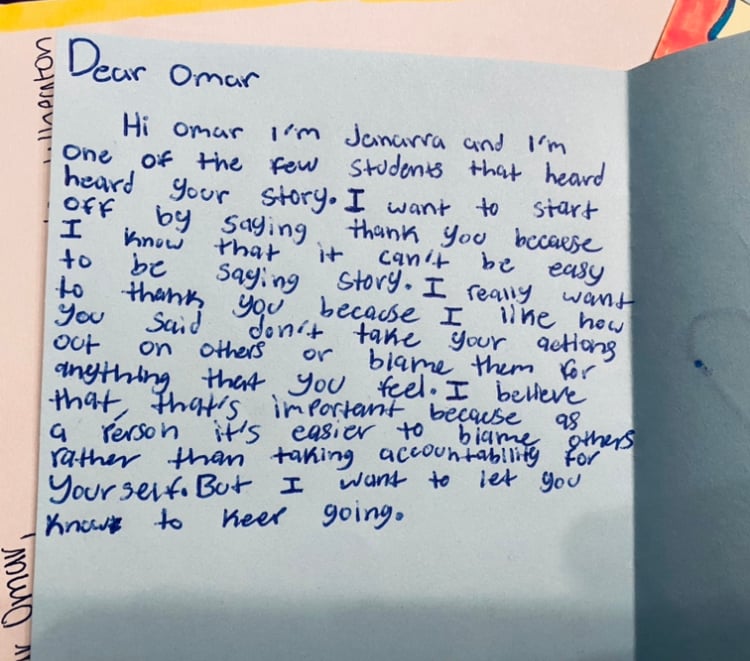 Dear Omar
Hi omar I'm Janarra and I'm
one of the few students that heard
heard your story. I want to start
off by saying thank you becaese
I know that it can't be easy
to be saying story. I really want
to thank you because I like how
you said don't take your actions
out on others or blame them for
anything that you feel. I believe
that, that's important because as
a Person it's easier to blame others
rather than taking accountability for
yourself. But I want to let you
know to keep going.
Omar,